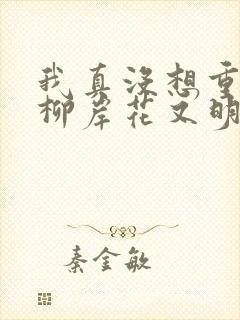 我真没想重
柳岸花又明
秦金敏